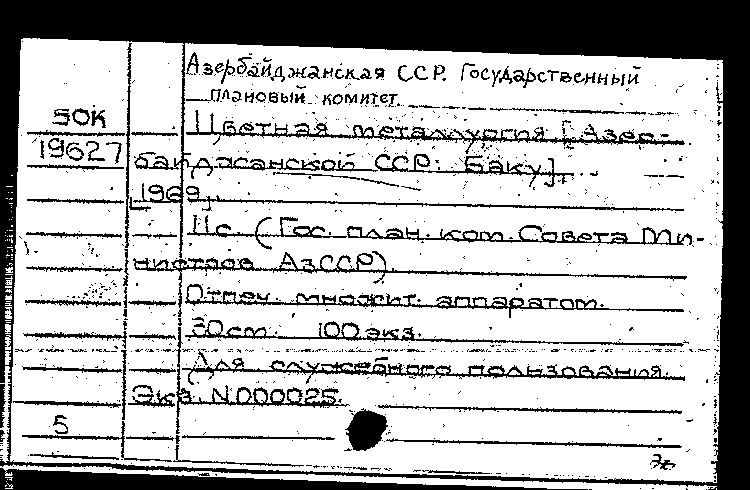 Азербайджанская ССР. Государственный
плановый комитет
50К
Цветная металлургия [Азер-
19627
байджанской ССР. Баку],
[1969].
11с. (Гос. план. ком. Совета Ми-
нистров АзССР).
Отпеч. множит. аппаратом.
30 см. 100 экз.
Для служебного пользования.
Экз. N000025.
5